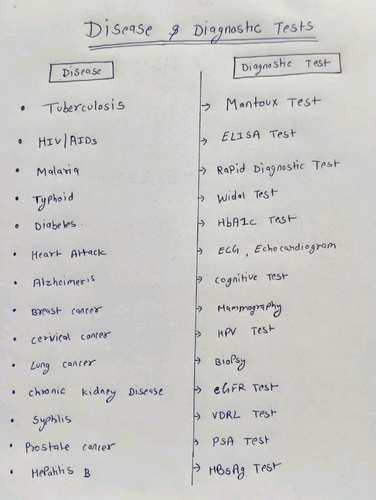 Disease & Diagnostic Tests
Disease Diagnostic Test
• Tuberculosis → Mantoux Test
• HIV/AIDs → ELISA Test
• Malaria → Rapid Diagnostic Test
• Typhoid → Widal Test
• Diabetes. → HbA1c Test
• Heart Attack → ECG, Echocardiogram
• Alzheimeris → cognitive Test
• Breast cancer → Mammography
• cervical cancer → HPV Test
• Lung cancer → Biopsy
• chronic kidney Disease → eGFR Test
• Syphilis → VDRL Test
• Prostate cancer → PSA Test
• Hepatitis B → HBsAg Test